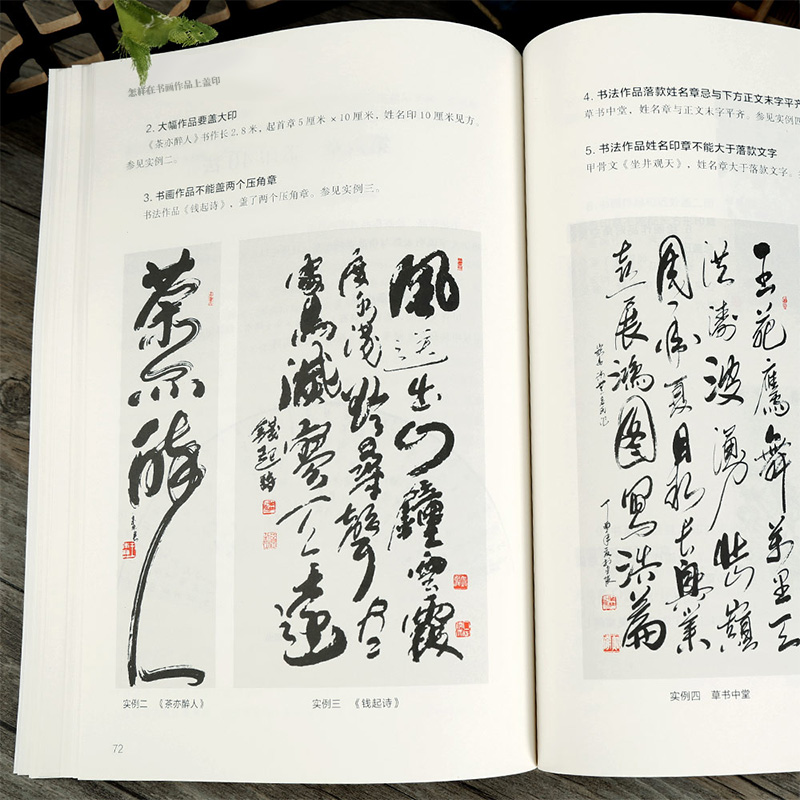 怎样在书画作品上盖印
2. 大幅作品要盖大印
《茶亦醉人》书作长 2.8 米，起首章 5 厘米 × 10 厘米，姓名印 10 厘米见方。
参见实例二。
3. 书画作品不能盖两个压角章
书法作品《钱起诗》，盖了两个压角章。参见实例三。
茶亦醉人
風送出山鐘雲霞
度水淺欲尋聲盡
處鳥滅寥天遠
錢起詩
实例二 《茶亦醉人》
实例三 《钱起诗》
72
4. 书法作品落款姓名章忌与下方正文末字平齐
草书中堂，姓名章与正文末字平齐。参见实例四
5. 书法作品姓名印章不能大于落款文字
甲骨文《坐井观天》，姓名章大于落款文字。
鷹舞萬里
洪濤波湧
展鴻圖寫浩篇
实例四 草书中堂